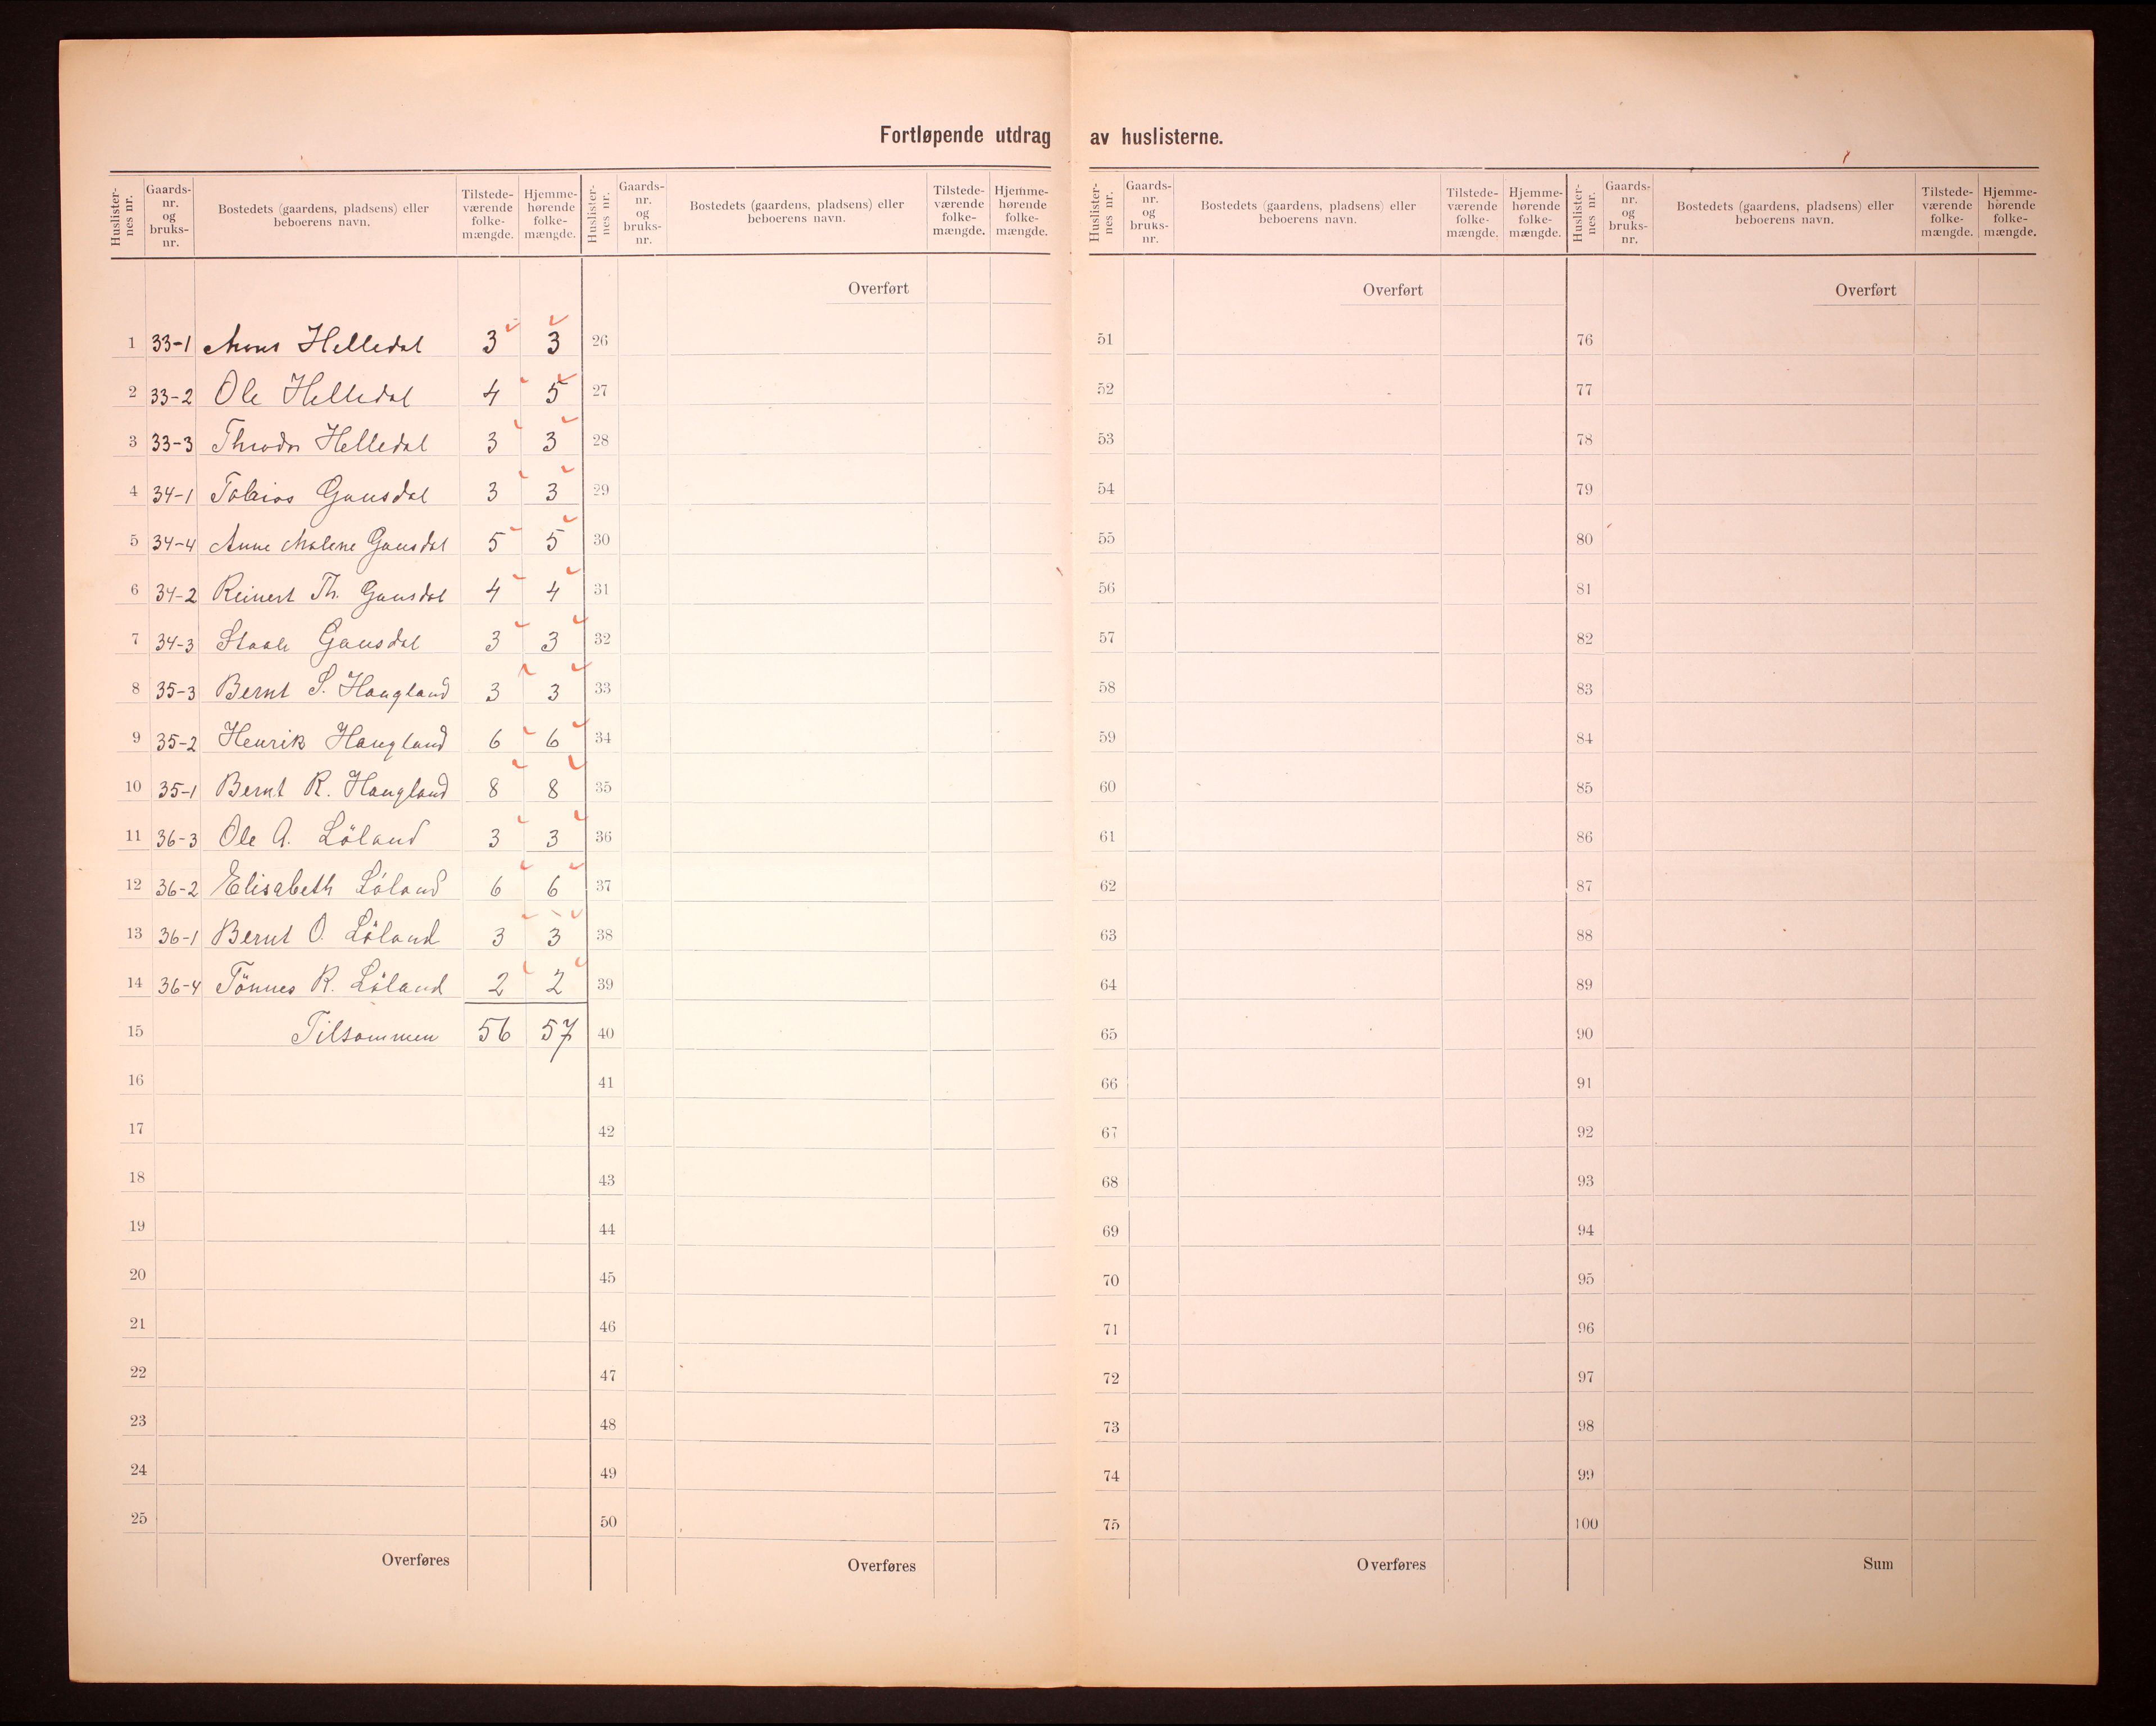 Fortløpende utdrag av huslisterne.
Huslisternes nr. Gaards-nr. og bruks-nr. Bostedets (gaardens, pladsens) eller beboerens navn. Tilstede-værende folke-mængde. Hjemme-hørende folke-mængde.
1 33-1 Mons Helledal 3 3
2 33-2 Ole Helledal 4 5
3 33-3 Theodor Helledal 3 3
4 34-1 Tobias Gausdal 3 3
5 34-4 Anne Malene Gausdal 5 5
6 34-2 Reinert Th. Gausdal 4 4
7 34-3 Staale Gausdal 3 3
8 35-3 Bernt S. Haugland 3 3
9 35-2 Henrik Haugland 6 6
10 35-1 Bernt R. Haugland 8 8
11 36-3 Ole A. Löland 3 3
12 36-2 Elisabeth Löland 6 6
13 36-1 Bernt O. Löland 3 3
14 36-4 Tönnes R. Löland 2 2
15 Tilsammen 56 57
16
17
18
19
20
21
22
23
24
25
Overføres
Huslisternes nr. Gaards-nr. og bruks-nr. Bostedets (gaardens, pladsens) eller beboerens navn. Tilstede-værende folke-mængde. Hjemme-hørende folke-mængde.
Overført
26
27
28
29
30
31
32
33
34
35
36
37
38
39
40
41
42
43
44
45
46
47
48
49
50
Overføres
Huslisternes nr. Gaards-nr. og bruks-nr. Bostedets (gaardens, pladsens) eller beboerens navn. Tilstede-værende folke-mængde. Hjemme-hørende folke-mængde.
Overført
51
52
53
54
55
56
57
58
59
60
61
62
63
64
65
66
67
68
69
70
71
72
73
74
75
Overføres
Huslisternes nr. Gaards-nr. og bruks-nr. Bostedets (gaardens, pladsens) eller beboerens navn. Tilstede-værende folke-mængde. Hjemme-hørende folke-mængde.
Overført
76
77
78
79
80
81
82
83
84
85
86
87
88
89
90
91
92
93
94
95
96
97
98
99
100
Sum